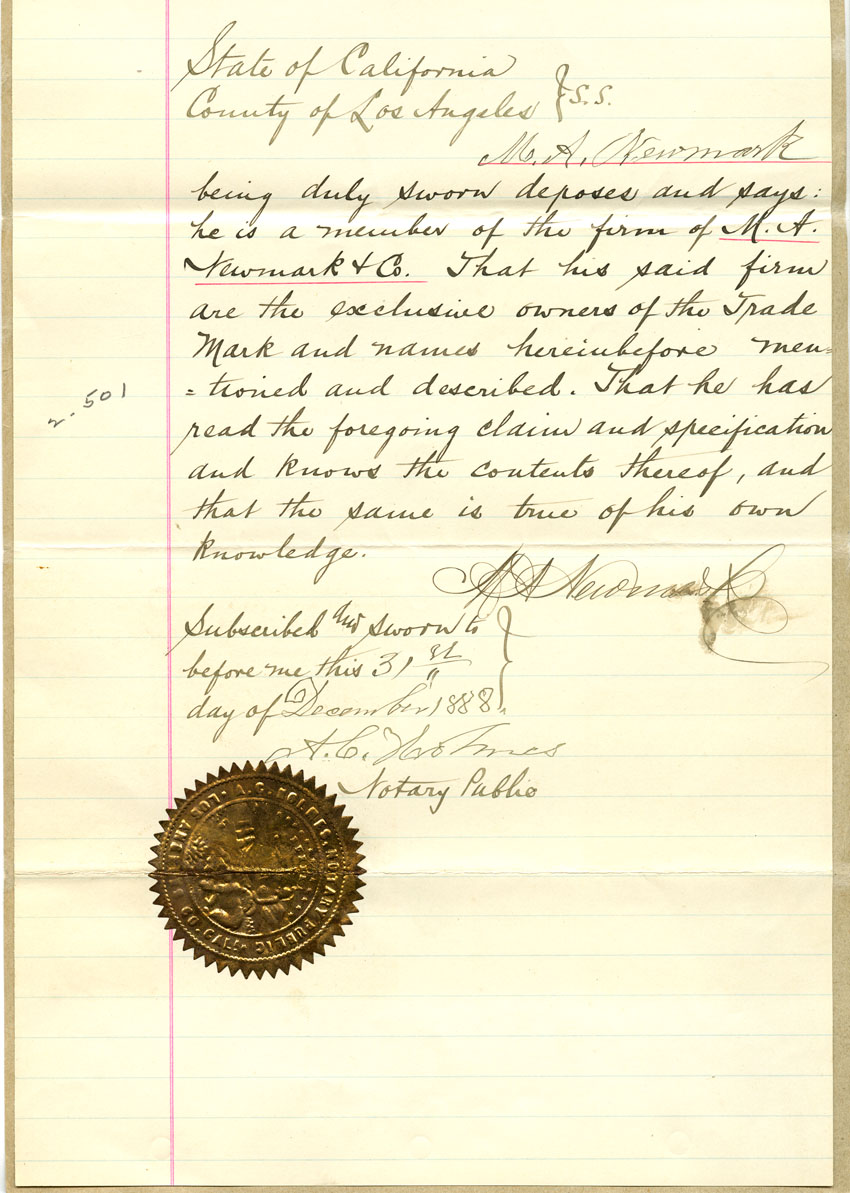 State of California
County of Los Angeles } S.S.
M. A. Newmark
being duly sworn deposes and says:
he is a member of the firm of M. A.
Newmark & Co. That his said firm
are the exclusive owners of the Trade
Mark and names hereinbefore men=
=tioned and described. That he has
read the foregoing claim and specification
and knows the contents thereof, and
that the same is true of his own
knowledge.
2. 501
M A Newmark
Subscribed and sworn to
before me this 31st
day of December 1888.
A. C. Holmes
Notary Public
A. C. HOLMES, NOTARY PUBLIC LOS ANGELES CO. CAL.